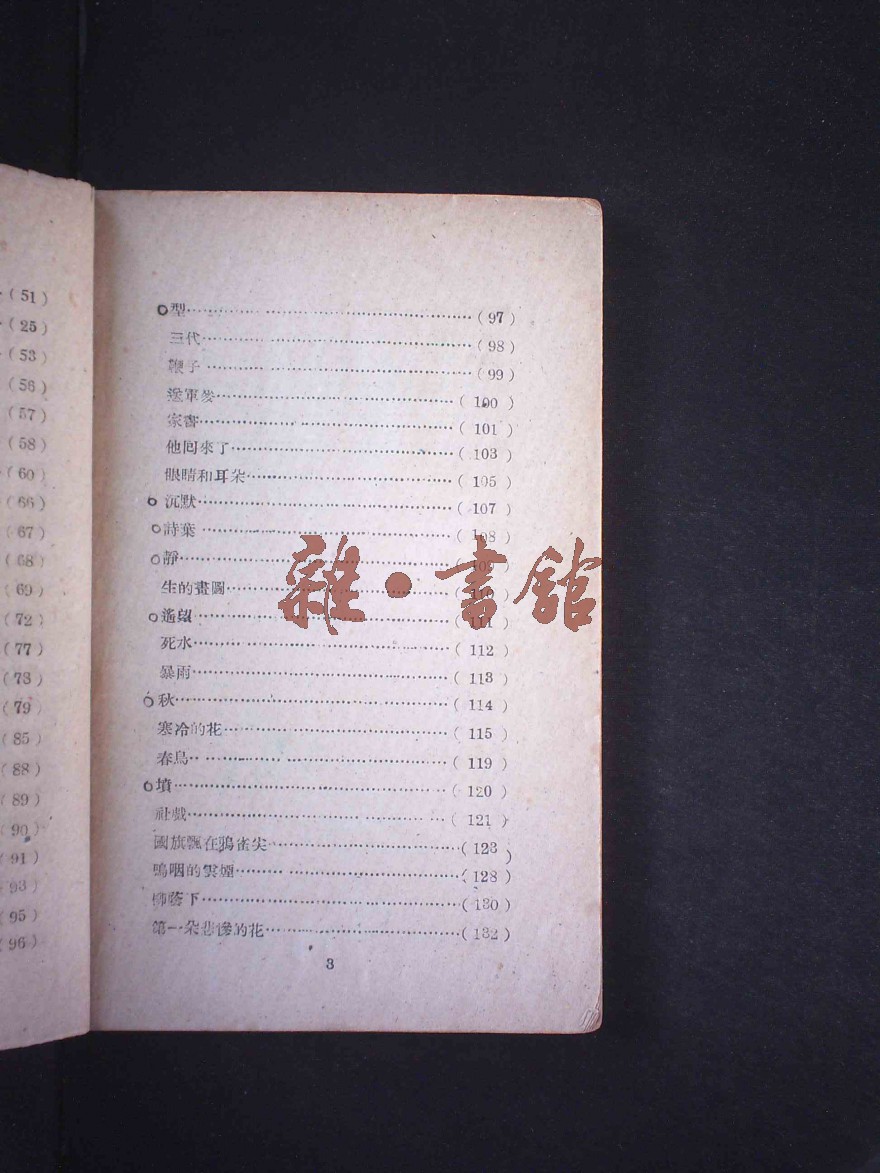 (51)
(25)
(53)
(56)
(57)
(58)
(60)
(66)
(67)
(68)
(69)
(72)
(77)
(73)
(79)
(85)
(88)
(89)
(90)
(91)
(93)
(95)
(96)
型…………………………(97)
三代…………………………(98)
鞭子…………………………(99)
送軍麥…………………………(100)
家書…………………………(101)
他囘來了…………………………(103)
眼睛和耳朵…………………………(105)
沉默…………………………(107)
詩葉…………………………(108)
靜…………………………(109)
生的畫圖…………………………(110)
遙望…………………………(111)
死水…………………………(112)
暴雨…………………………(113)
秋…………………………(114)
寒冷的花…………………………(115)
春鳥…………………………(119)
墳…………………………(120)
社戲…………………………(121)
國旗飄在鴉雀尖…………………………(123)
嗚咽的雲煙…………………………(128)
柳蔭下…………………………(130)
第一朵悲慘的花…………………………(132)
3
雜·書館